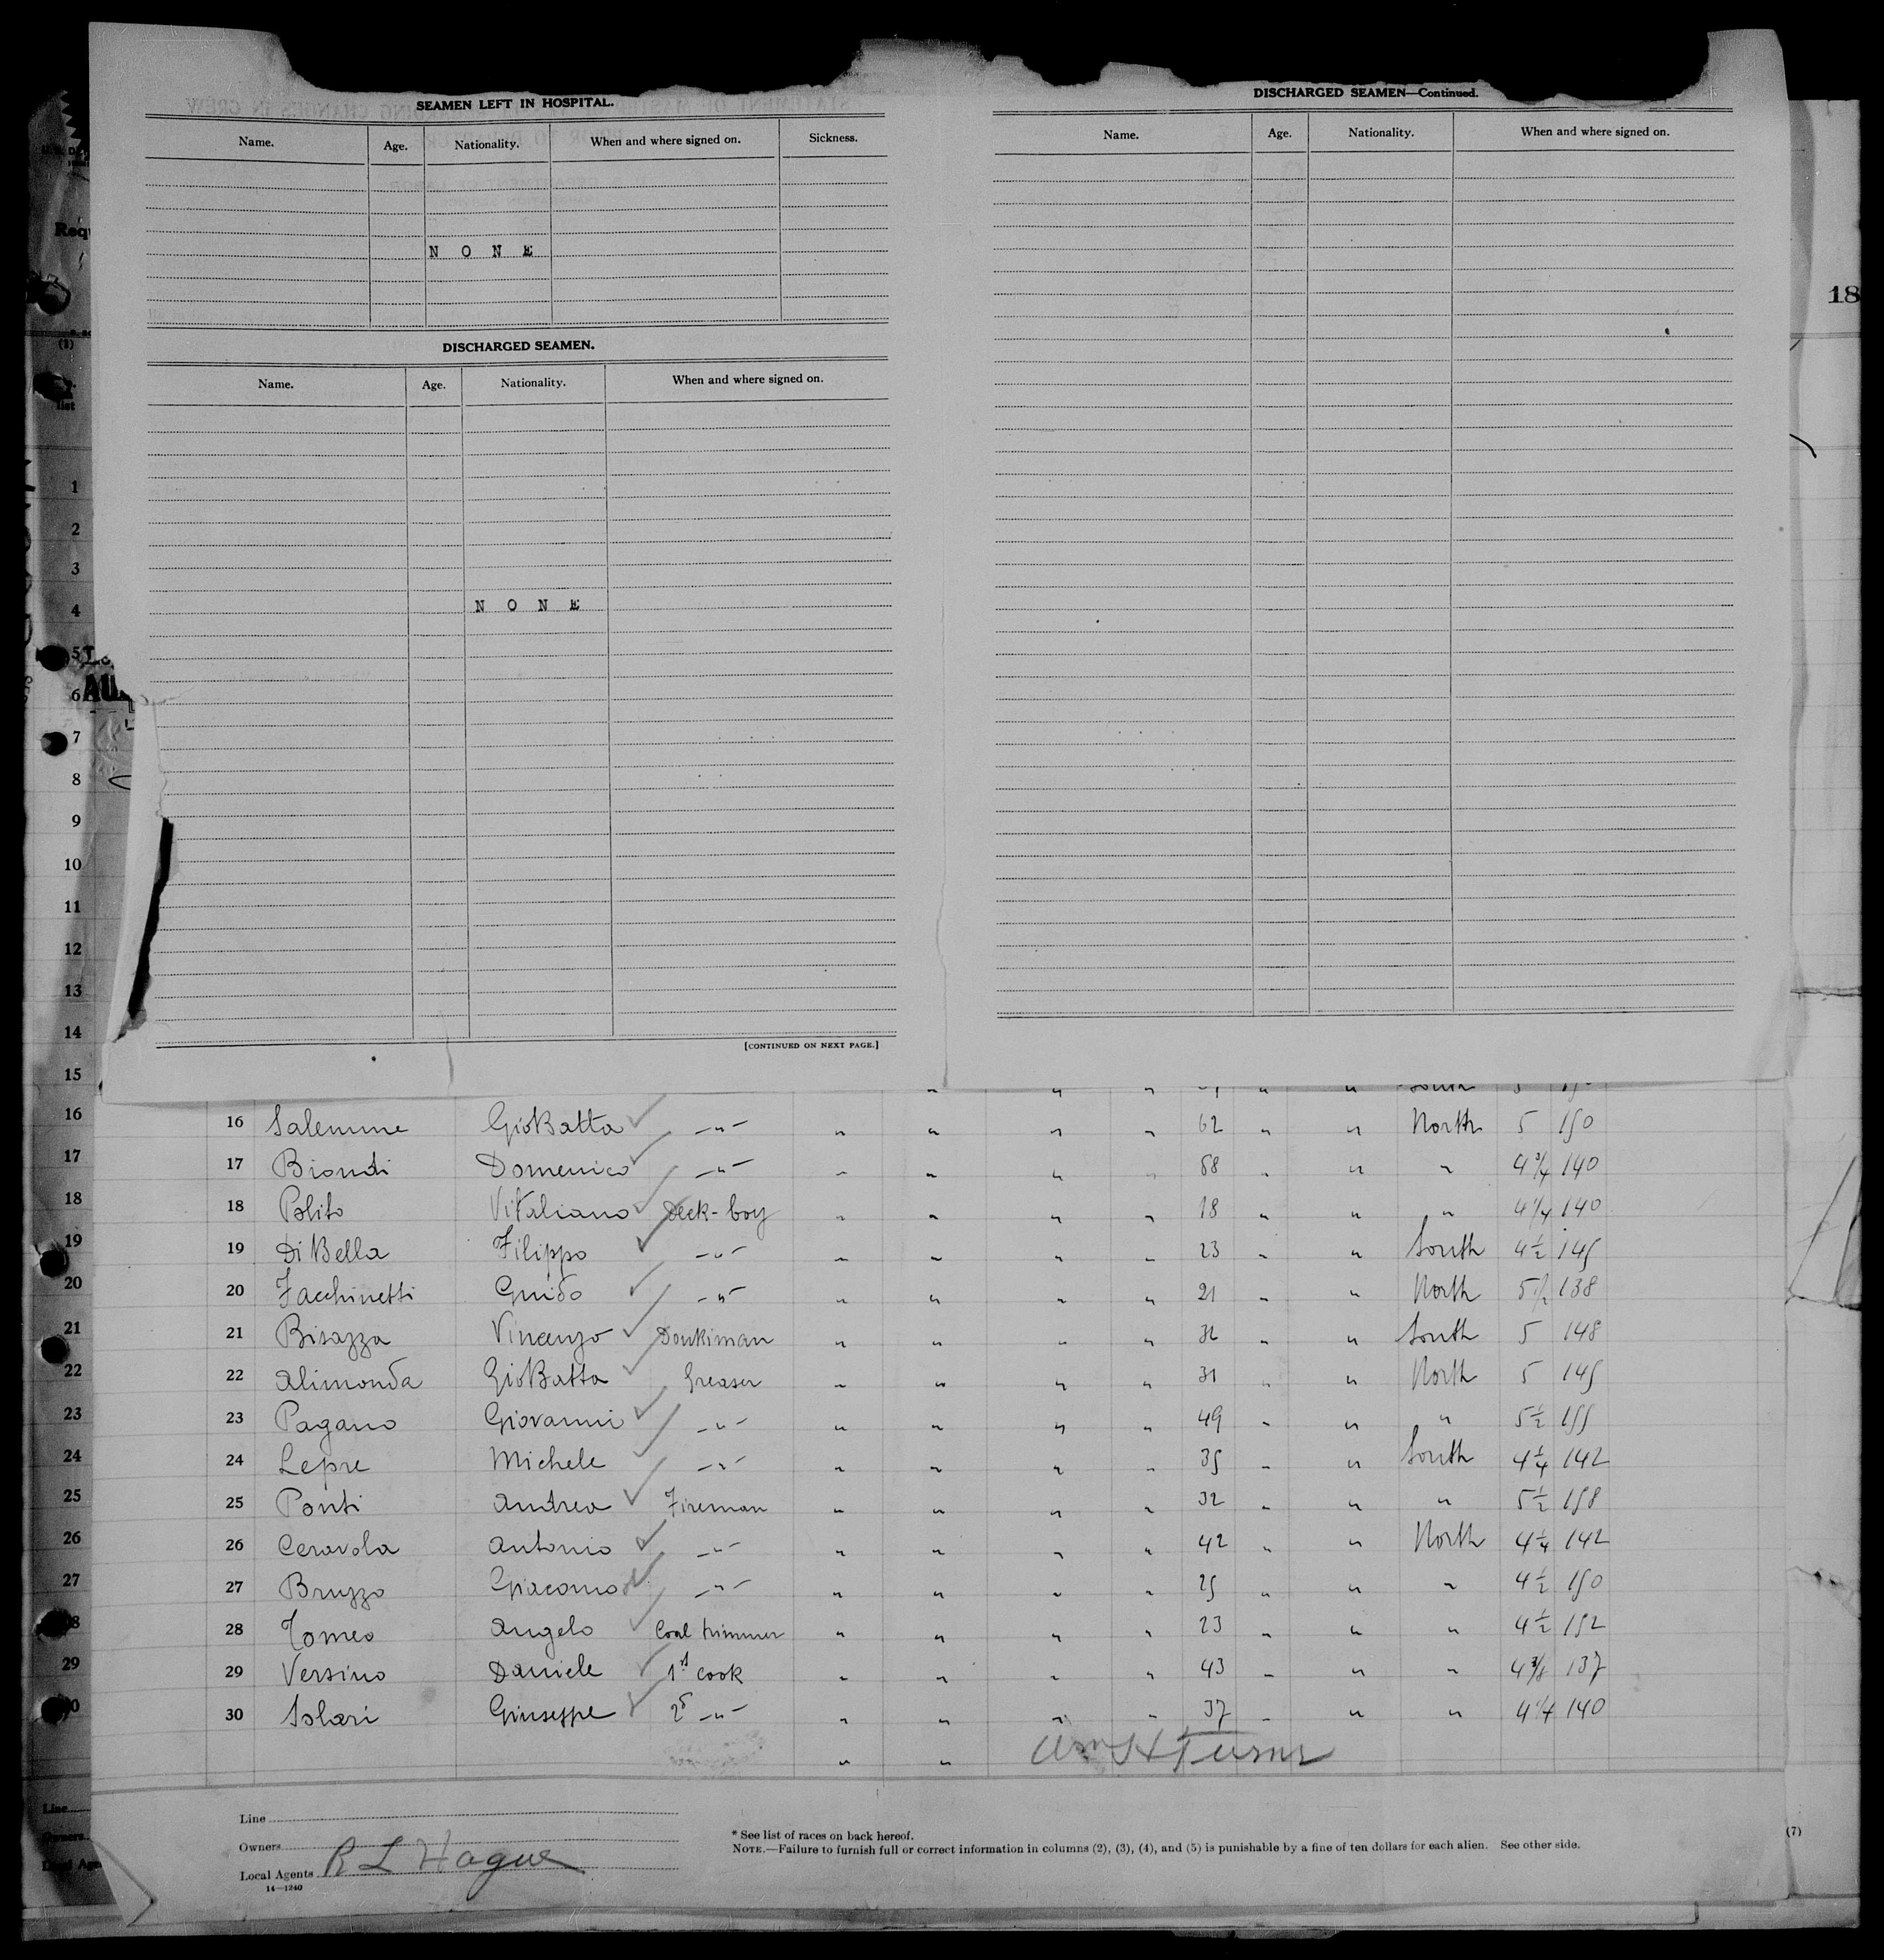 SEAMEN LEFT IN HOSPITAL.
Name. Age. Nationality. When and where signed on. Sickness.
N O N E
DISCHARGED SEAMEN.
Name. Age. Nationality. When and where signed on.
N O N E
[CONTINUED ON NEXT PAGE.]
DISCHARGED SEAMEN—Continued.
Name. Age. Nationality. When and where signed on.
18
1
2
3
4
5
6
7
8
9
10
11
12
13
14
15
16 16 Salemme GioBatta ✓ —"— " " " " 62 " " North 5 150
17 17 Biondi Domenico ✓ —"— " " " " 58 " " " 4 3/4 140
18 18 Polito Vitaliano ✓ Deck-boy " " " " 18 " " " 4 1/4 140
19 19 Di Bella Filippo ✓ —"— " " " " 23 " " South 4 1/2 145
20 20 Facchinetti Guido ✓ —"— " " " " 21 " " North 5 1/2 138
21 21 Bisazza Vincenzo ✓ Donkiman " " " " 32 " " South 5 148
22 22 Alimonda GioBatta ✓ Greaser " " " " 31 " " North 5 145
23 23 Pagano Giovanni ✓ —"— " " " " 49 " " " 5 1/2 155
24 24 Lepre Michele ✓ —"— " " " " 35 " " South 4 1/4 142
25 25 Ponti Andrea ✓ Fireman " " " " 32 " " " 5 1/2 158
26 26 Ceravola Antonio ✓ —"— " " " " 42 " " North 4 1/4 142
27 27 Bruzzo Giacomo ✓ —"— " " " " 25 " " " 4 1/2 150
28 28 Tomeo Angelo ✓ Coal trimmer " " " " 23 " " " 4 1/2 152
29 29 Versino Daniele ✓ 1st cook " " " " 43 " " " 4 3/8 137
30 30 Solari Giuseppe ✓ 2d —"— " " " " 37 " " " 4 1/4 140
" " Wm H Turner
Line
Owners
Local Agents R L Hague
14—1240
* See list of races on back hereof.
NOTE.—Failure to furnish full or correct information in columns (2), (3), (4), and (5) is punishable by a fine of ten dollars for each alien. See other side.
(7)